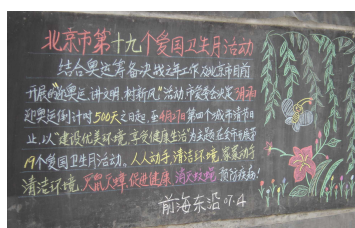 北京市第十九个爱国卫生月活动
结合奥运筹备决战之年工作及北京市目前
开展的"迎奥运、讲文明、树新风"活动市爱委会决定3月27日
迎奥运倒计时500天之日起至4月27日第四个城市清洁日
止,以"建设优美环境,享受健康生活"为主题在全市开展第
19个爱国卫生月活动。人人动手,清洁环境,家家动手
清洁环境,灭鼠灭蟑,促进健康,消灭蚊蝇,预防疾病!
前海东沿 07.4